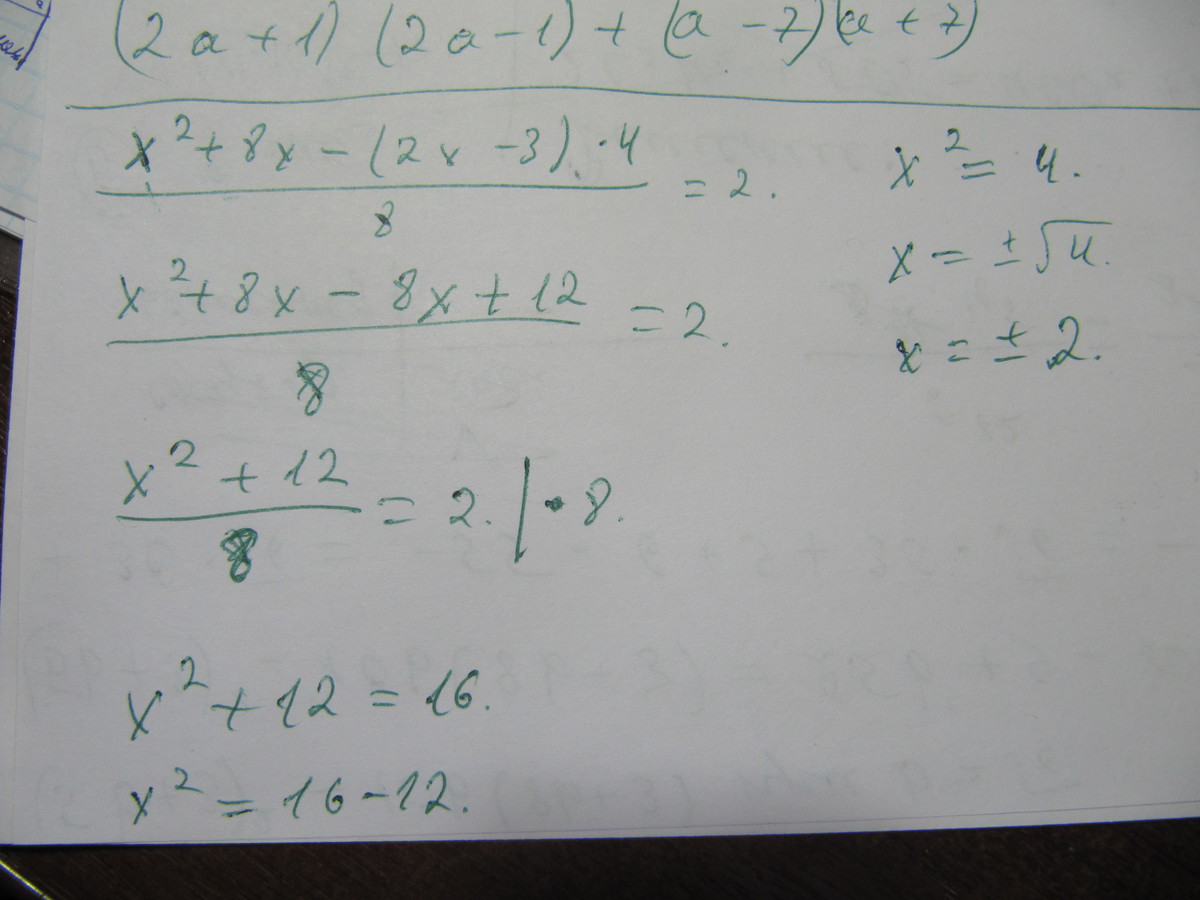 (2a+1) (2a-1) + (a-7)(a+7)
x²+8x-(2x-3)·4
= 2.
8
x²+8x-8x+12
= 2.
8
x²+12
= 2. | ·8.
8
x²+12 = 16.
x² = 16-12.
x² = 4.
x = ±√4.
x = ±2.